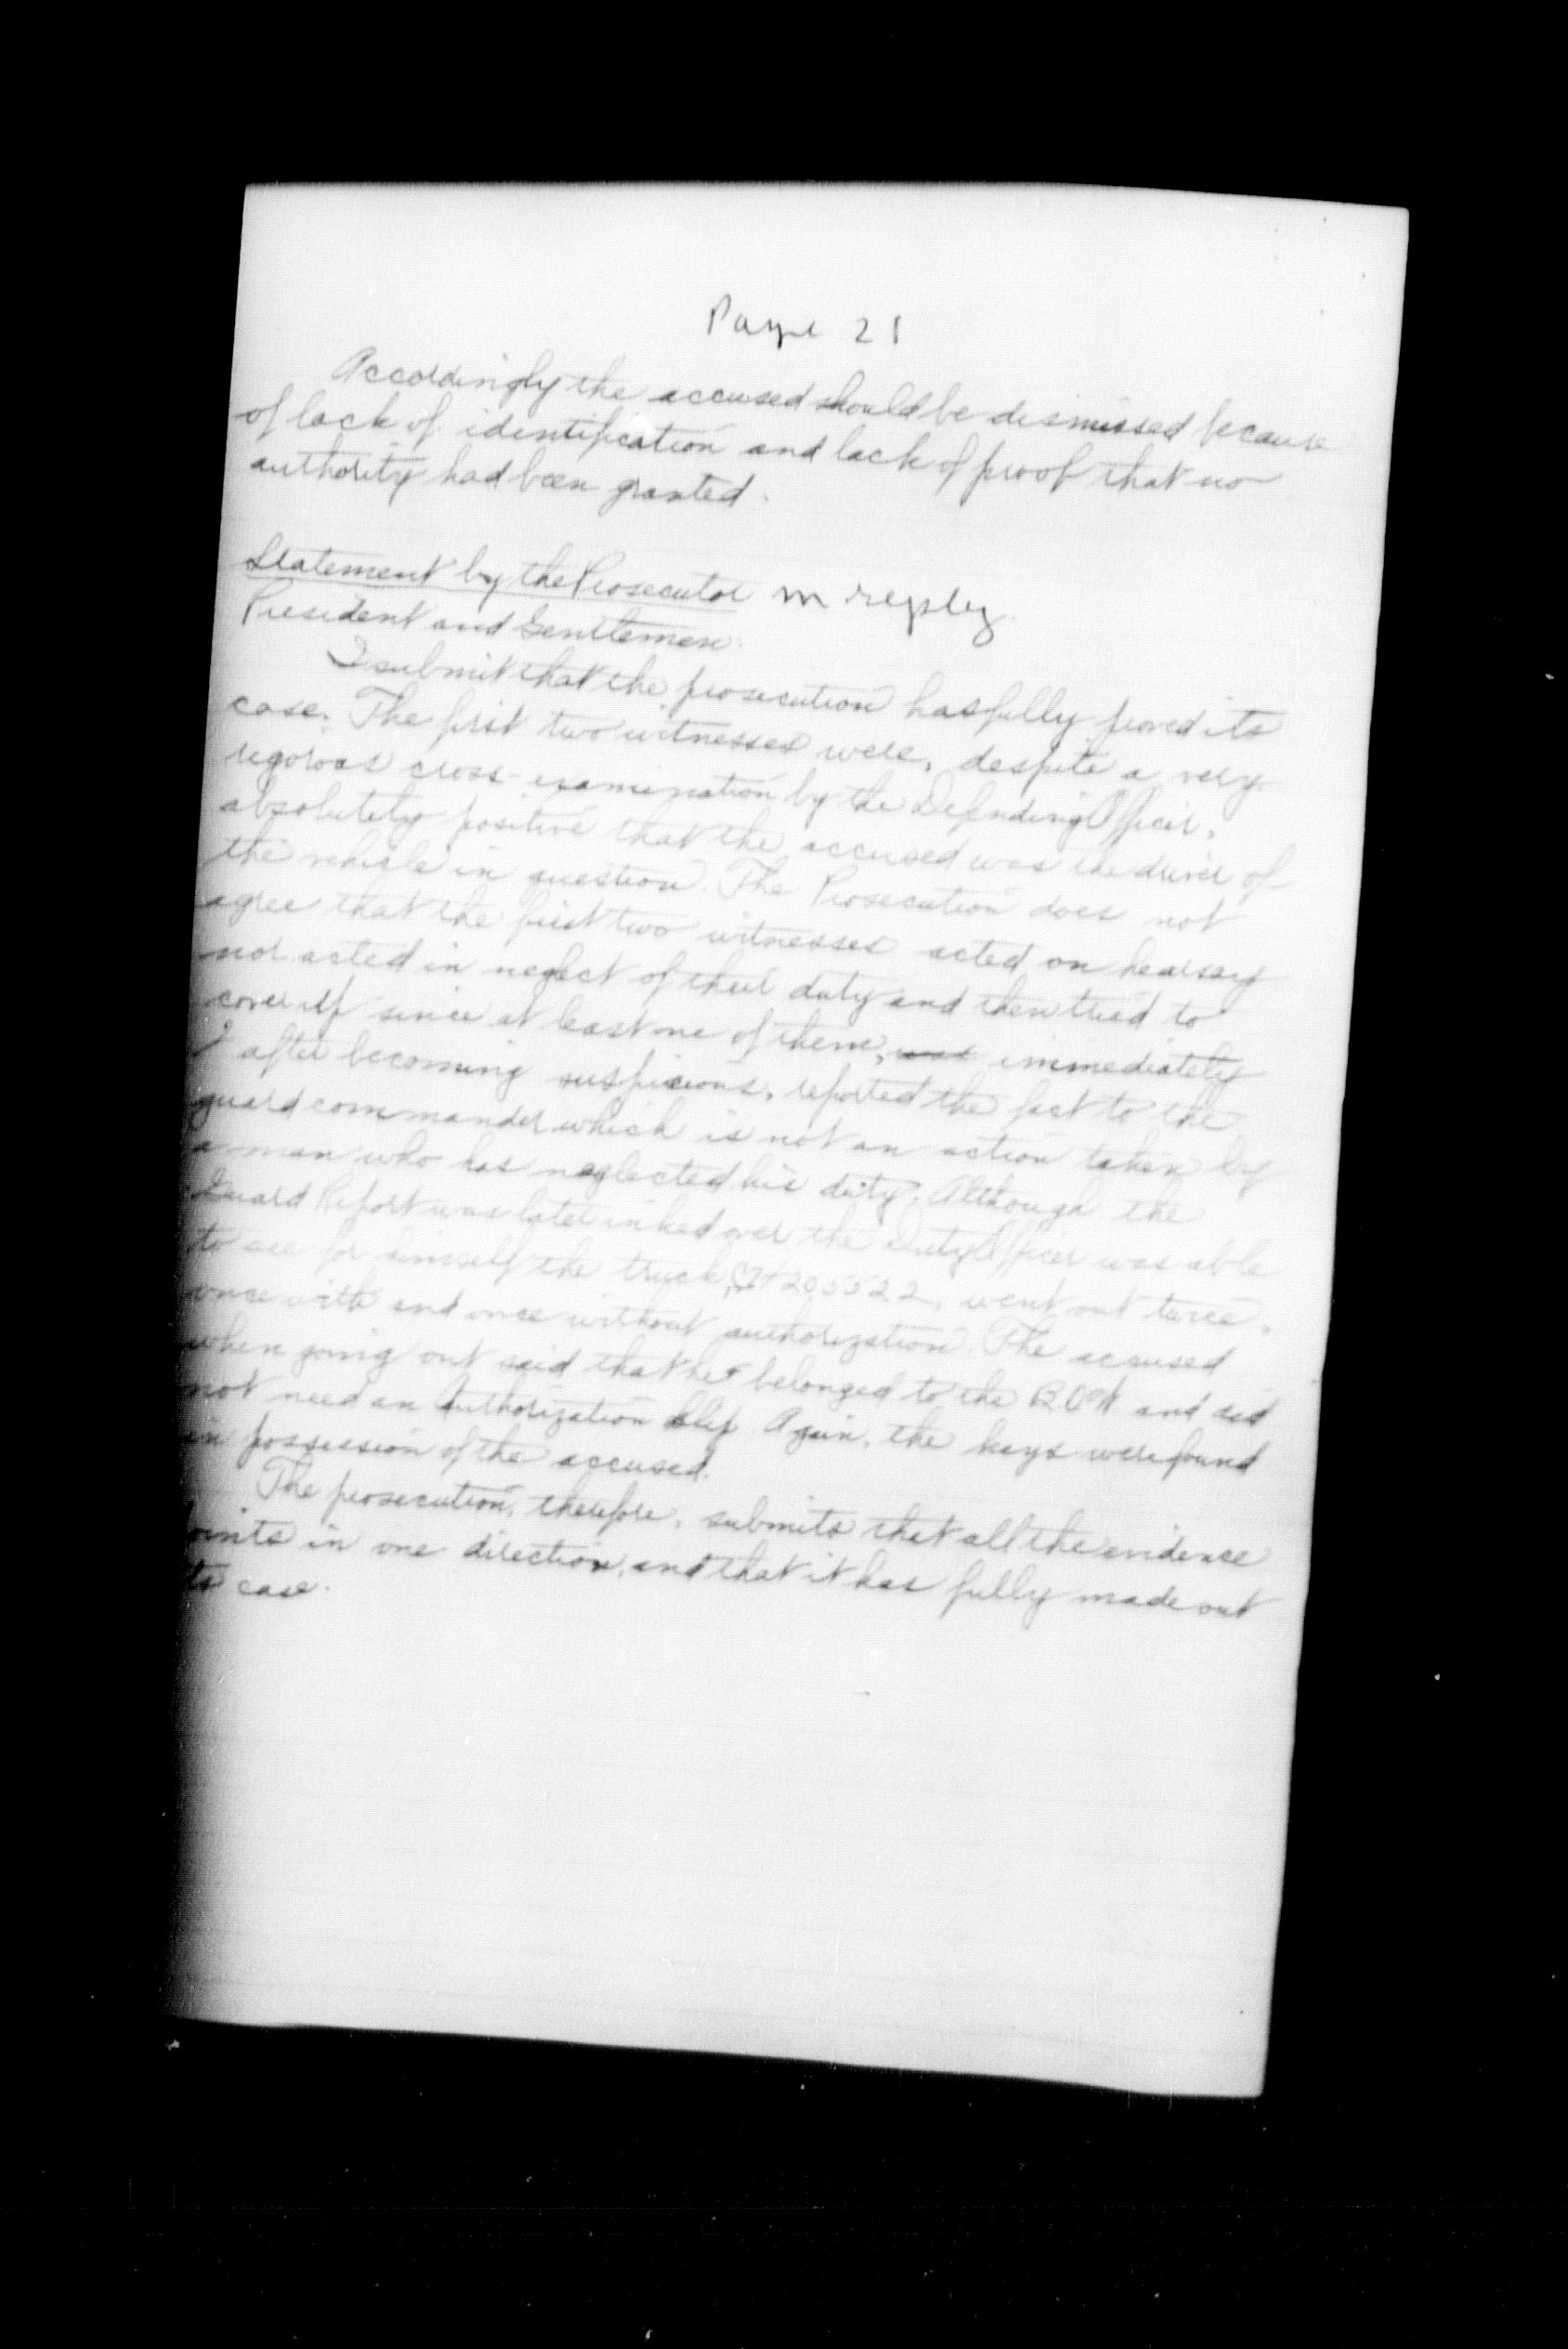 Page 21
Accordingly the accused should be dismissed because
of lack of identification and lack of proof that no
authority had been granted.
Statement by the Prosecutor in reply
President and Gentlemen:
I submit that the prosecution has fully proved its
case. The first two witnesses were, despite a very
rigorous cross-examination by the Defending Officer,
absolutely positive that the accused was the driver of
the vehicle in question. The Prosecution does not
agree that the first two witnesses acted on hearsay
nor acted in neglect of their duty and then tried to
cover it since at least one of them, was immediately
after becoming suspicious, reported the fact to the
guard commander which is not an action taken by
a man who has neglected his duty. Although the
Guard Report was later inked over the Duty Officer was able
to see for himself the truck, 205522, went out twice,
once with and once without authorization. The accused
when going out said that he belonged to the and did
not need an Authorization slip. Again, the keys were found
in possession of the accused.
The prosecution, therefore, submits that all the evidence
points in one direction, and that it has fully made out
its case.